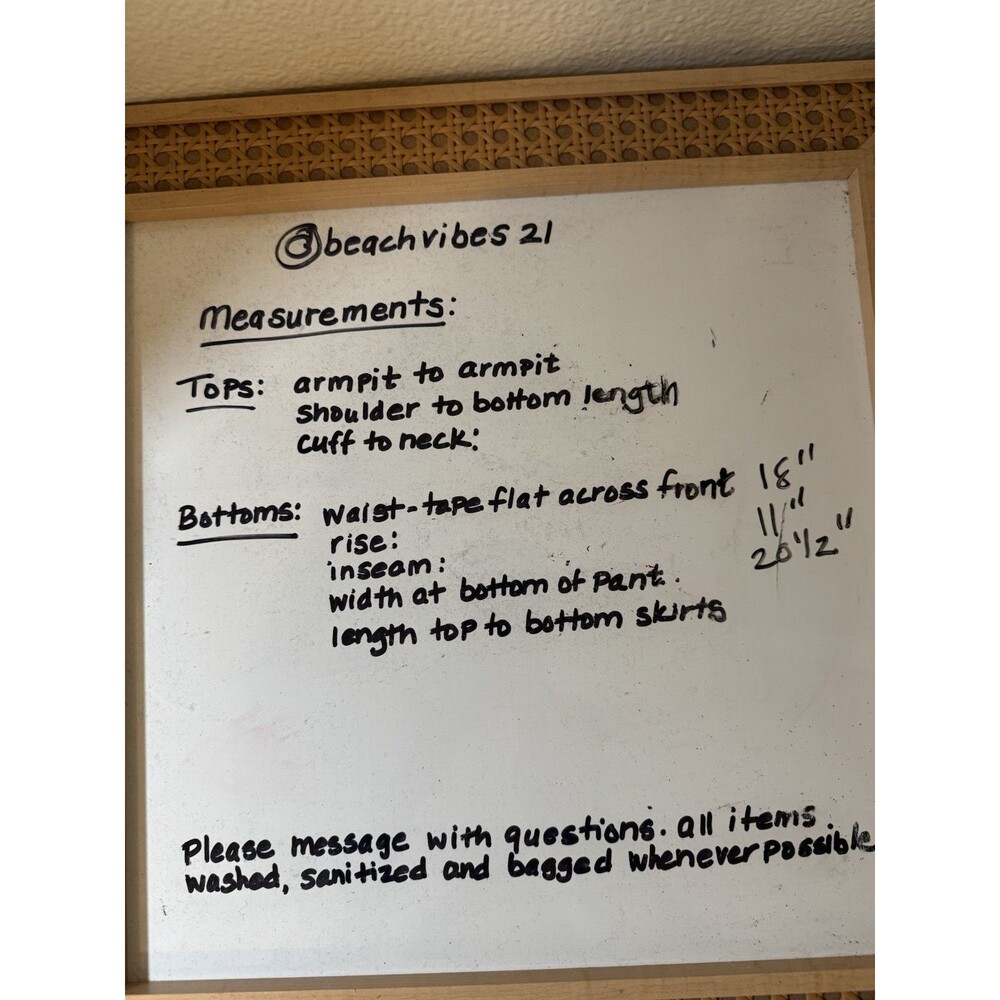 @beachvibes 21
Measurements:
Tops: armpit to armpit
shoulder to bottom length
cuff to neck:
Bottoms: waist-tape flat across front 18"
rise: 11"
inseam: 20 1/2"
width at bottom of pant.
length top to bottom skirts
Please message with questions. all items.
washed, sanitized and bagged whenever possible